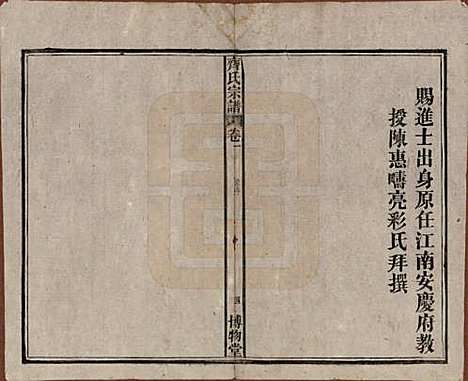 賜進士出身原任江南安慶府教
授陳惠疇亮彩氏拜撰
齊氏宗譜
卷一
四
博物堂